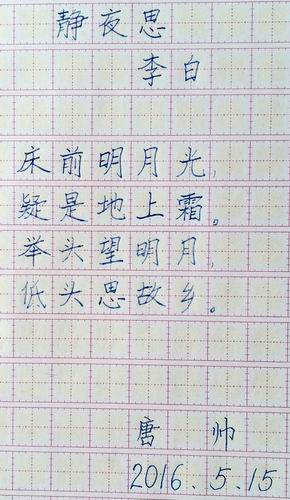 静夜思
李白
床前明月光,
疑是地上霜。
举头望明月,
低头思故乡。
唐帅
2016.5.15